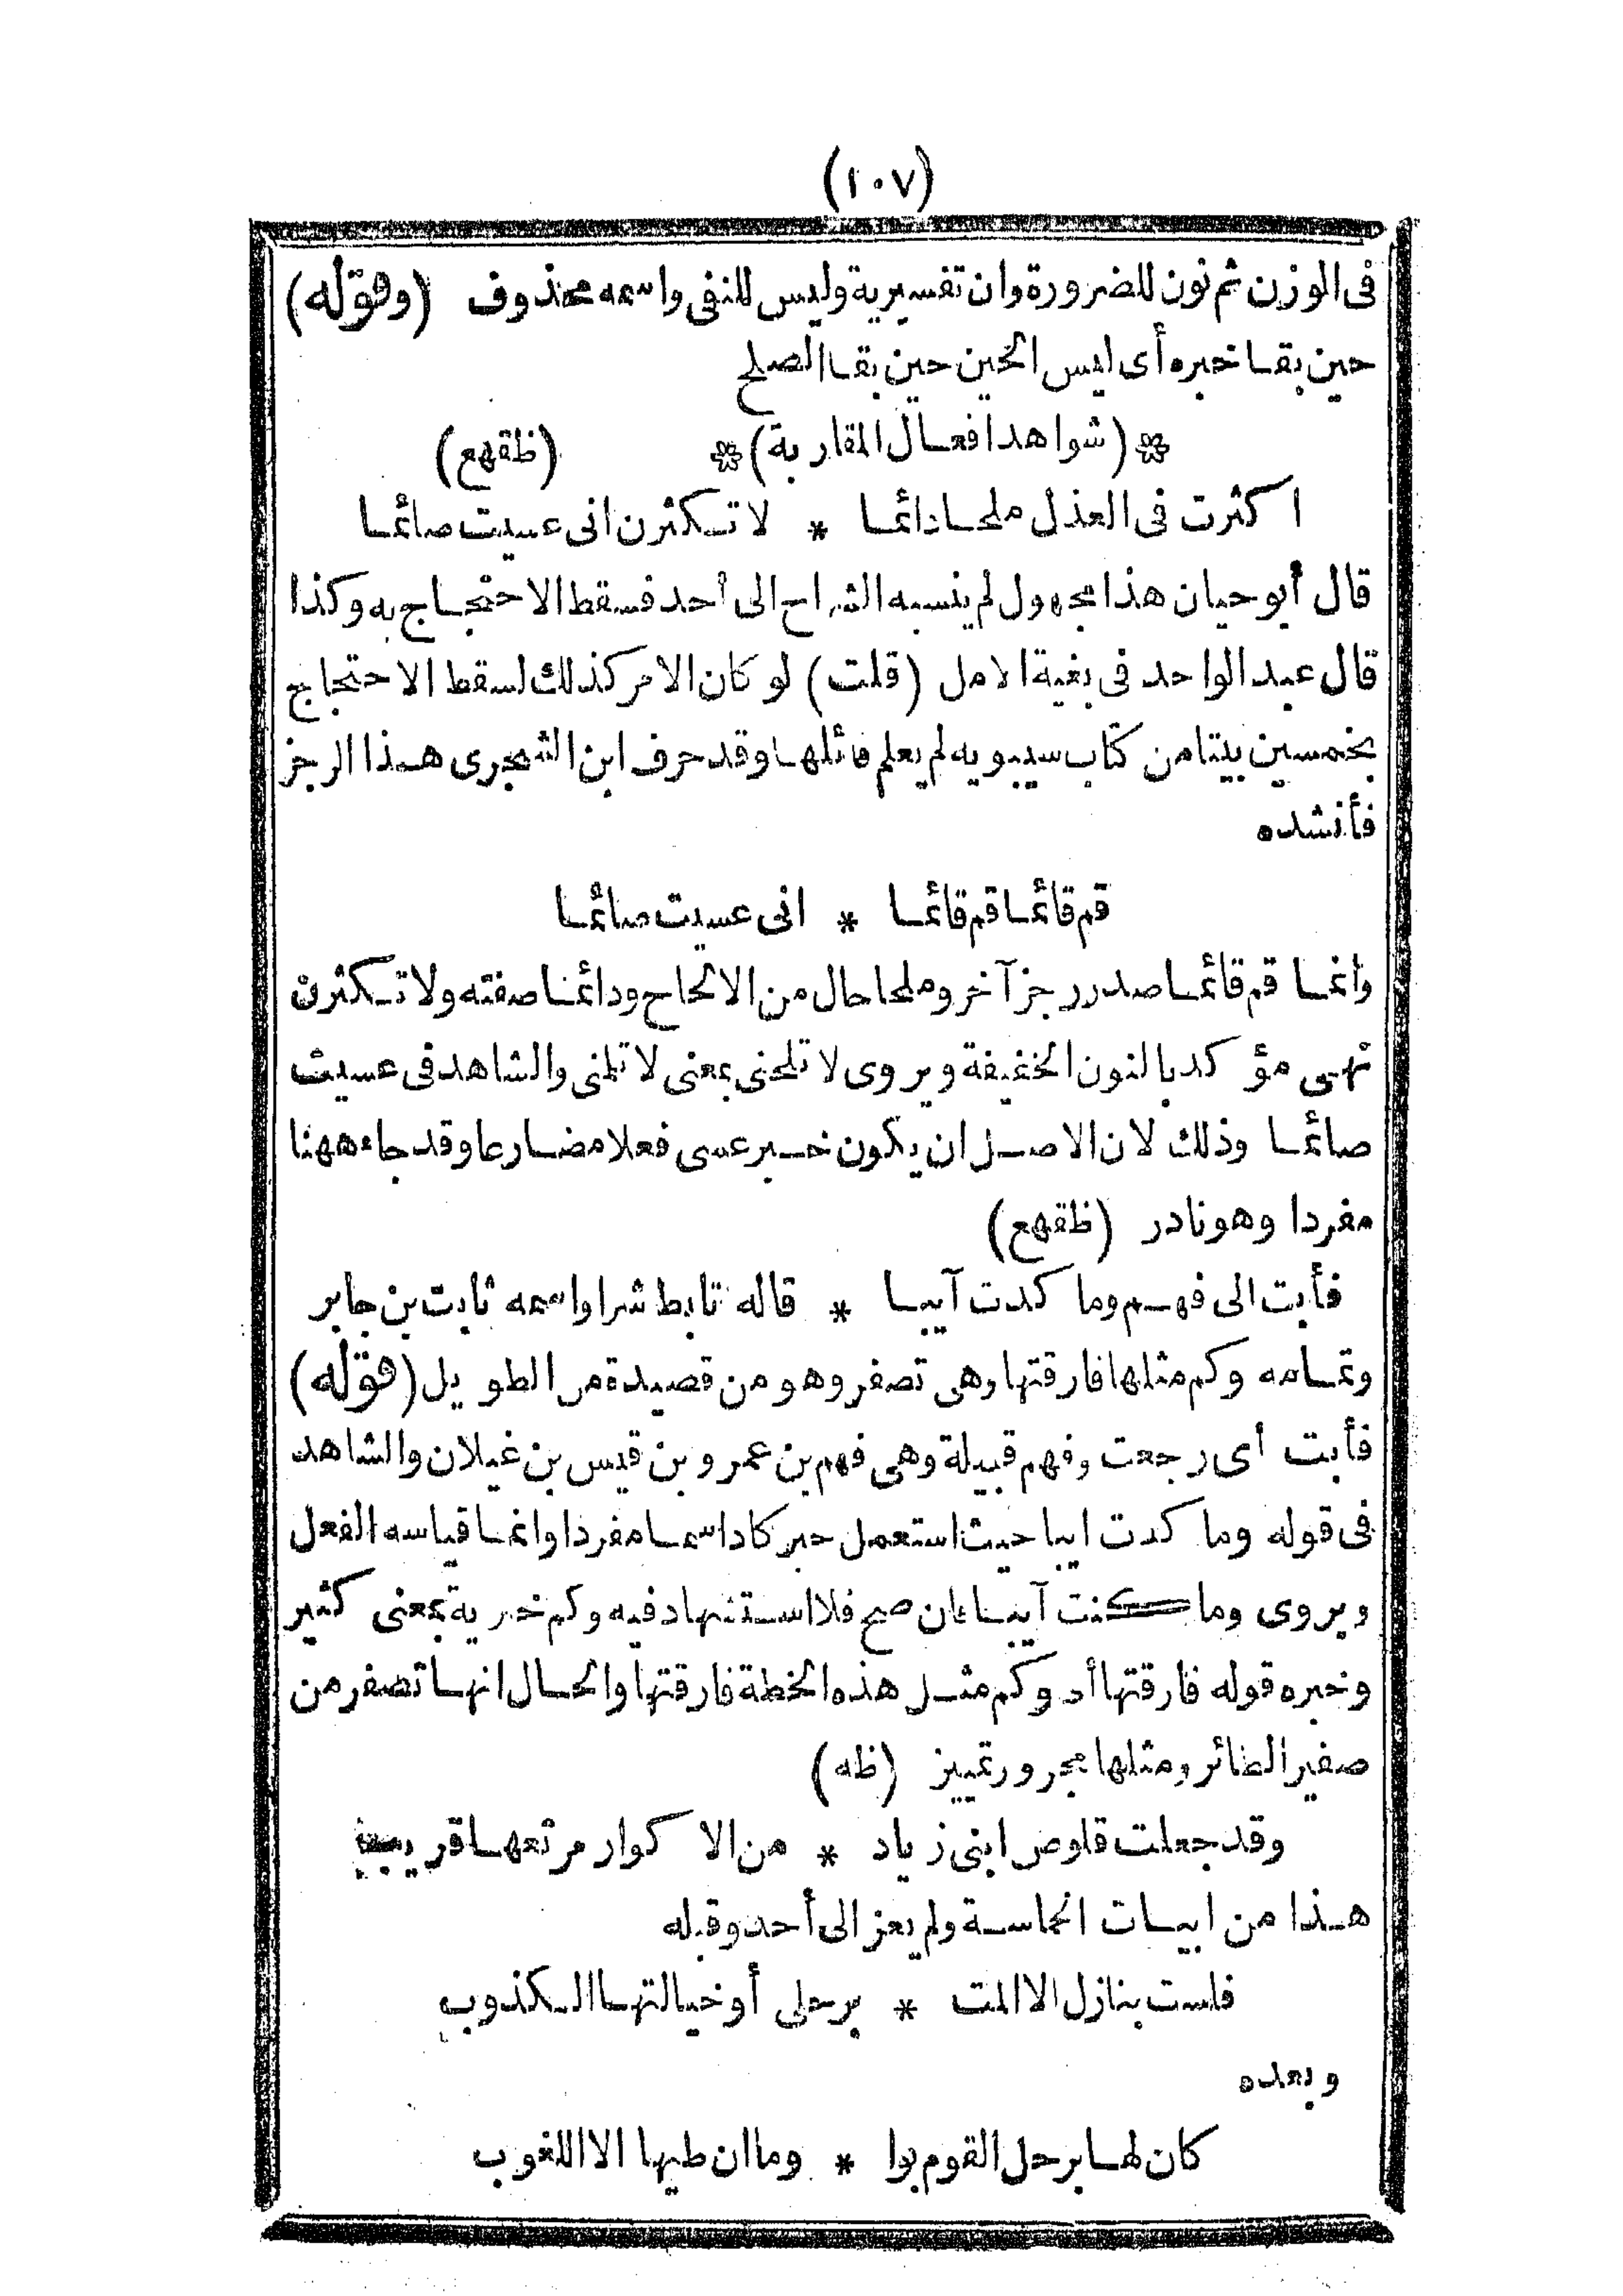 (١٠٧)
فى الوزن ثم نون للضرورة وان تفسيرية وليس للنفى واسمه محذوف (وقوله)
حين بقا خبره أى ليس الحين حين بقا الصلح
❊(شواهد افعال المقاربة)❊ (ظقهع)
اكثرت فى العذل ملحا دائما * لا تكثرن انى عسيت صائما
قال أبو حيان هذا مجهول لم ينسبه الشراح الى أحد فسقط الاحتجاج به وكذا
قال عبد الواحد فى بغية الامل (قلت) لو كان الامر كذلك لسقط الاحتجاج
بخمسين بيتا من كتاب سيبويه لم يعلم قائلها وقد حرف ابن الشجرى هذا الرجز
فأنشده
قم قائما قم قائما * انى عسيت صائما
وانما قم قائما صدر رجز آخر وملحا حال من الالحاح ودائما صفته ولا تكثرن
نهى مؤكد بالنون الخفيفة ويروى لا تلحنى بمعنى لا تلمنى والشاهد فى عسيت
صائما وذلك لان الاصل ان يكون خبر عسى فعلا مضارعا وقد جاء ههنا
مفردا وهو نادر (ظقهع)
فأبت الى فهم وما كدت آيبا * قاله تابط شرا واسمه ثابت بن جابر
وتمامه وكم مثلها فارقتها وهى تصفر وهو من قصيدة من الطويل (قوله)
فأبت أى رجعت وفهم قبيلة وهى فهم بن عمرو بن قيس بن غيلان والشاهد
فى قوله وما كدت ايبا حيث استعمل خبر كاد اسما مفردا وانما قياسه الفعل
ويروى وما كنت آيبا فان صح فلا استشهاد فيه وكم خبرية بمعنى كثير
وخبره قوله فارقتها أى وكم مثل هذه الخطة فارقتها والحال انها تصفر من
صفير الطائر ومثلها مجرور تمييز (ظه)
وقد جعلت قلوص ابنى زياد * من الاكوار مرتعها قريب
هذا من ابيات الحماسة ولم يعز الى أحد وقبله
فلست بنازل الا المت * برحلى أو خيالتها الكذوب
وبعده
كان لها برحل القوم بوا * وما ان طبها الا اللغوب